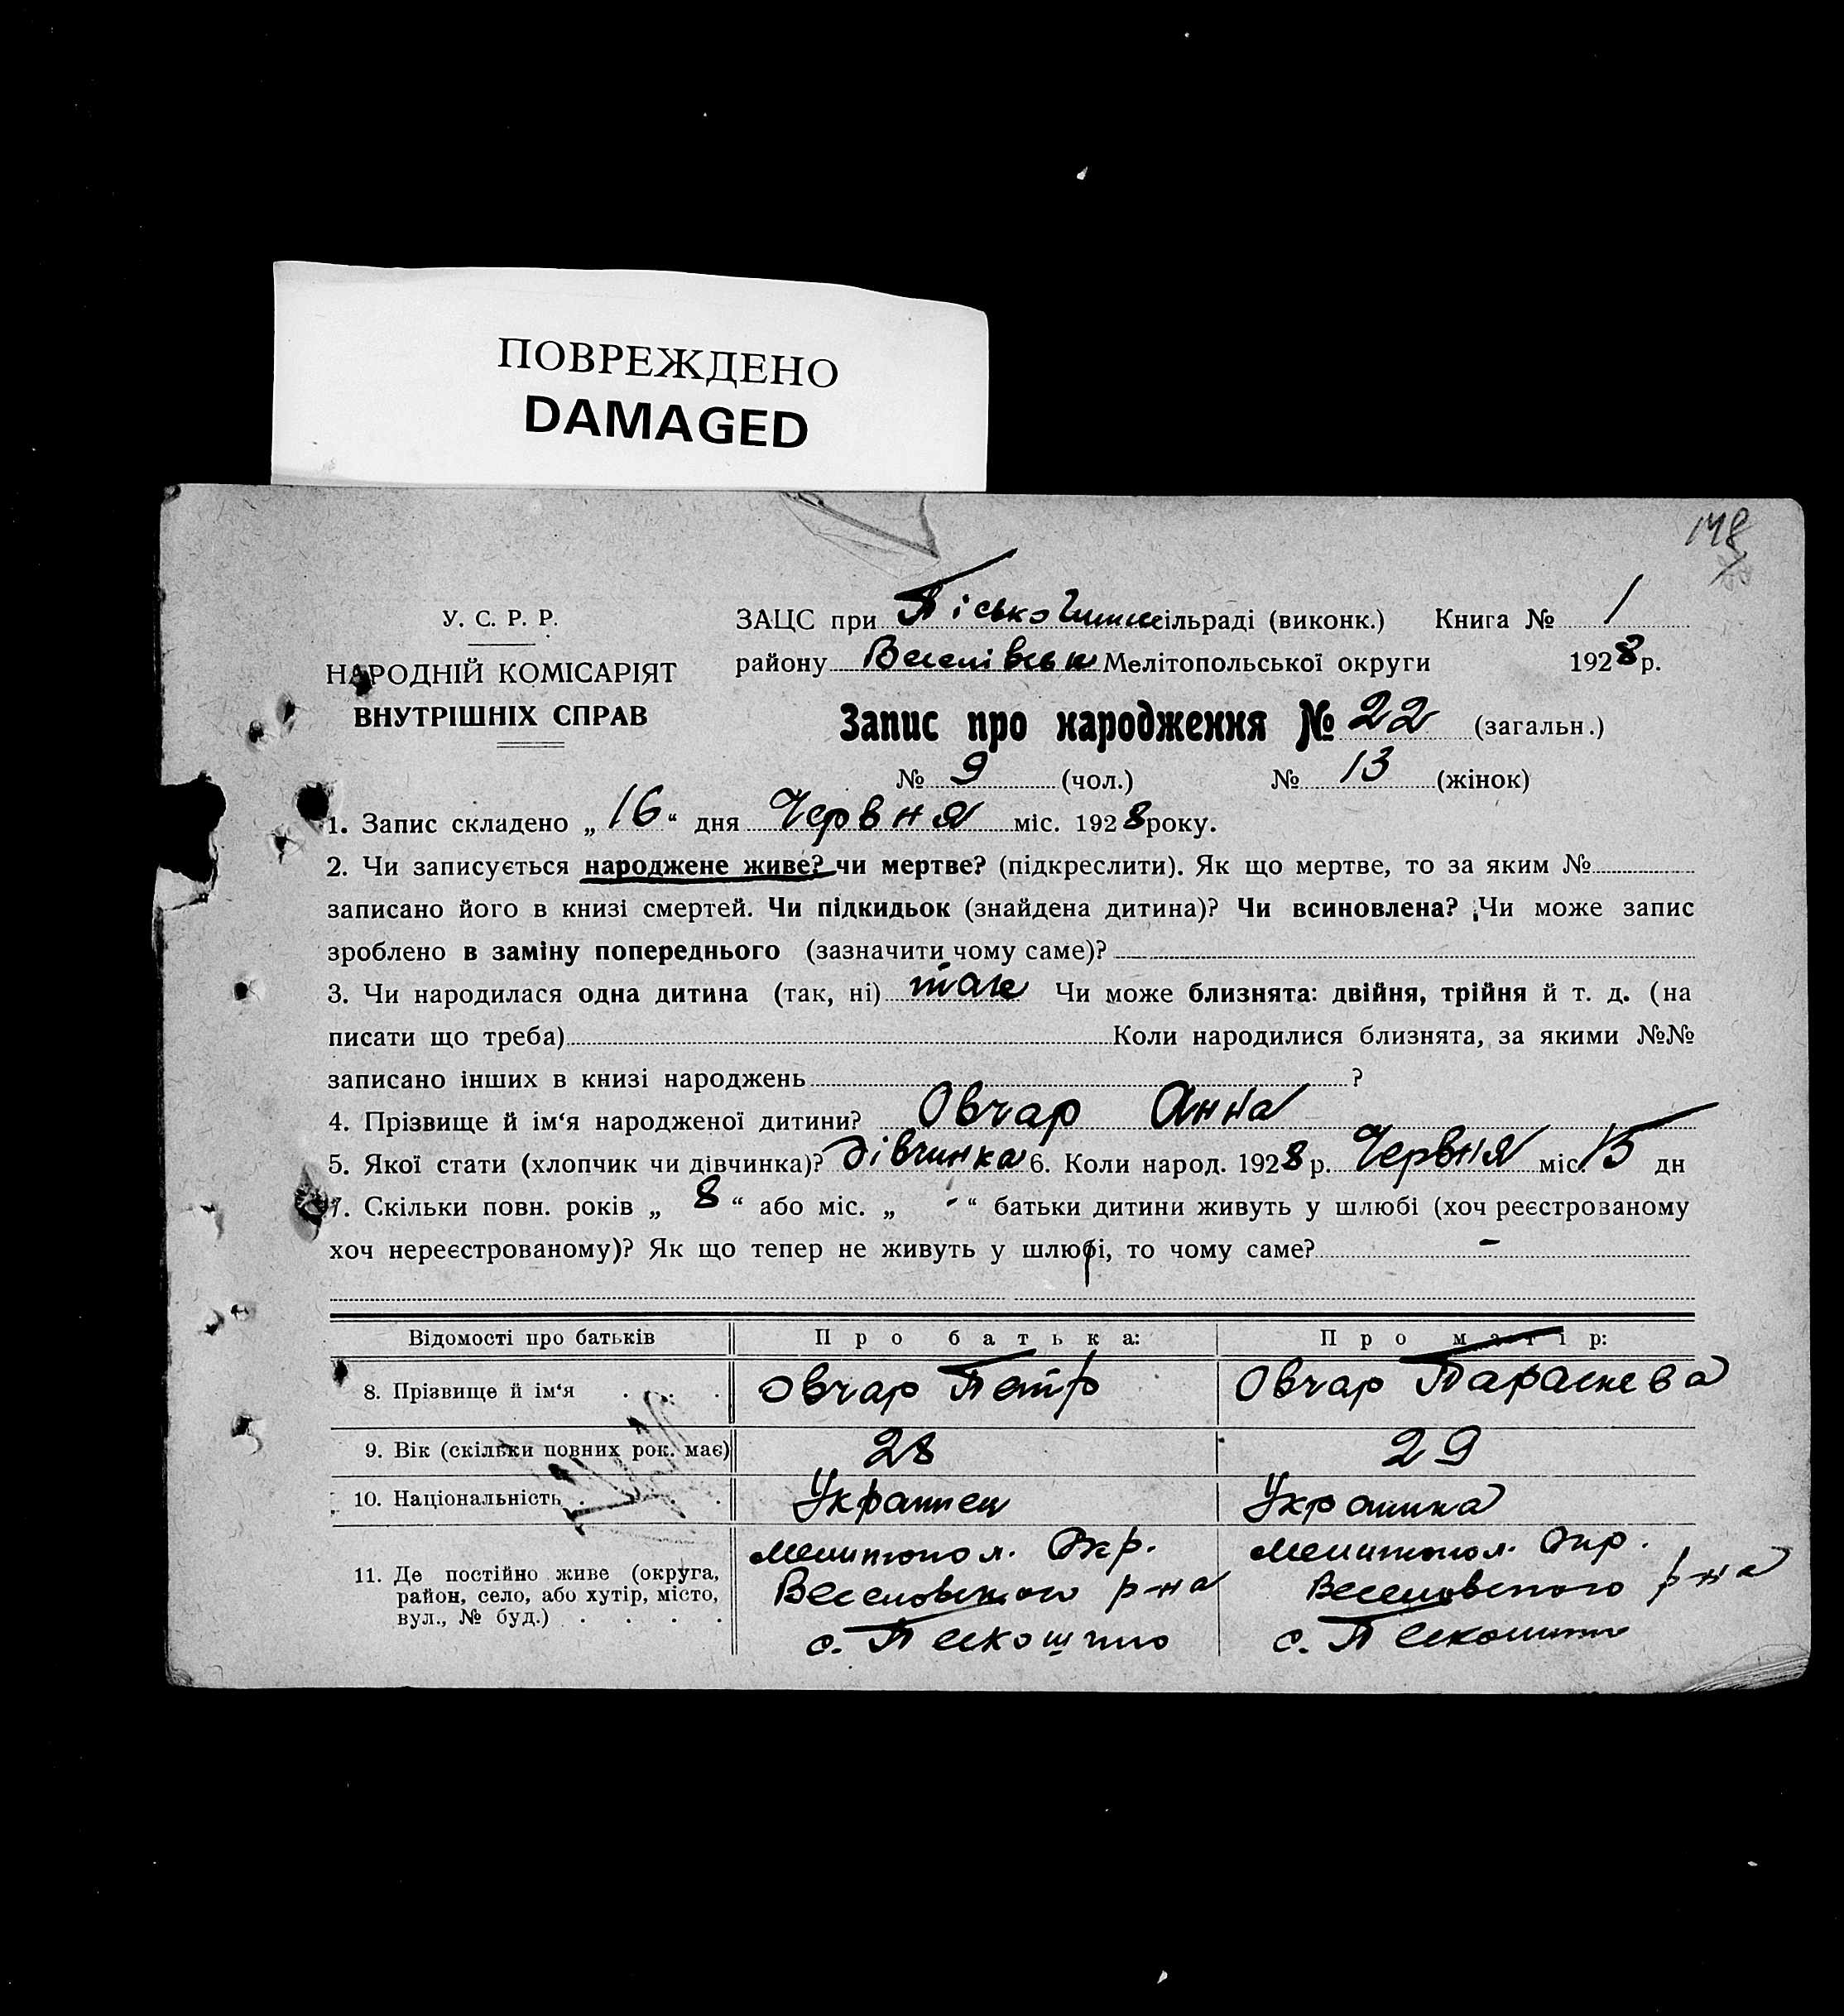 ПОВРЕЖДЕНО
DAMAGED
148
У. С. Р. Р.
НАРОДНІЙ КОМІСАРІЯТ
ВНУТРІШНІХ СПРАВ
ЗАЦС при сільраді (виконк.) Книга № 1
району Веселівськ Мелітопольської округи 1928 р.
Запис про народження № 22 (загальн.)
№ 9 (чол.) № 13 (жінок)
1. Запис складено „16“ дня Червня міс. 1928 року.
2. Чи записується народжене живе? чи мертве? (підкреслити). Як що мертве, то за яким №
записано його в книзі смертей. Чи підкидьок (знайдена дитина)? Чи всиновлена? Чи може запис
зроблено в заміну попереднього (зазначити чому саме)?
3. Чи народилася одна дитина (так, ні) так Чи може близнята: двійня, трійня й т. д. (на
писати що треба) Коли народилися близнята, за якими №№
записано інших в книзі народжень ?
4. Прізвище й ім‘я народженої дитини? Овчар Анна
5. Якої стати (хлопчик чи дівчинка)? дівчинка 6. Коли народ. 1928 р. Червня міс 15 дн
7. Скільки повн. років „ 8 “ або міс. „ - “ батьки дитини живуть у шлюбі (хоч реєстрованому
хоч нереєстрованому)? Як що тепер не живуть у шлюбі, то чому саме? -
Відомості про батьків Про батька: Про матір:
8. Прізвище й ім‘я Овчар Петр Овчар Параскева
9. Вік (скільки повних рок. має) 28 29
10. Національність Украинец Украинка
11. Де постійно живе (округа, район, село, або хутір, місто, вул., № буд.)
Мелитопол. Окр. Мелитопол. Окр.
Веселовского р-на Веселовского р-на
с. Пескошино с. Пескошино